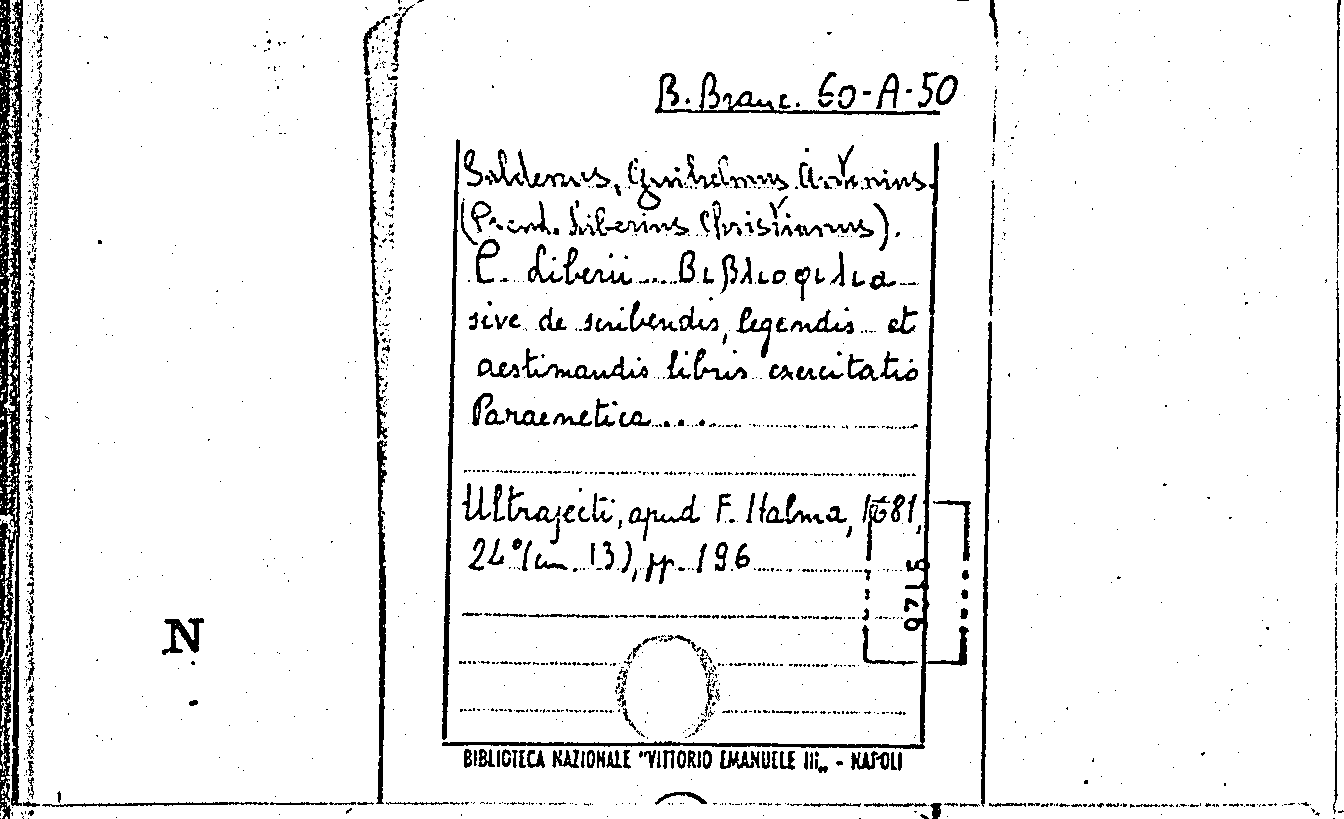 B. Branc. 60-A-50
Saldenus, Guilhelmus Antonius.
(Pseud. Liberius Christianus).
C. Liberii ... Βιβλιοφιλια
sive de scribendis, legendis et
aestimandis libris exercitatio
Paraenetica ...
Ultrajecti, apud F. Halma, 1681,
24° (cm. 13), pp. 196
9715
N
BIBLIOTECA NAZIONALE "VITTORIO EMANUELE III" - NAPOLI